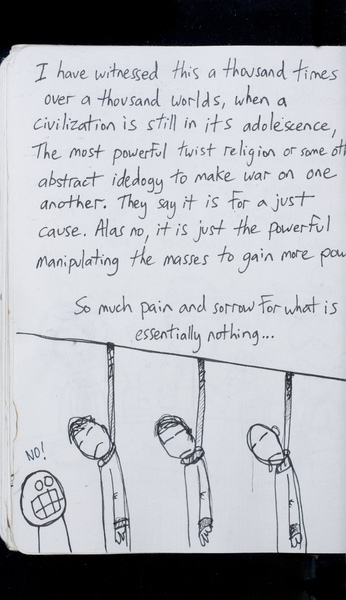 I have witnessed this a thousand times
over a thousand worlds, when a
civilization is still in its adolescence,
The most powerful twist religion or some
abstract idedogy to make war on one
another. They say it is for a just
cause. Alas no, it is just the powerful
manipulating the masses to gain more
So much pain and sorrow for what is
essentially nothing...
NO!